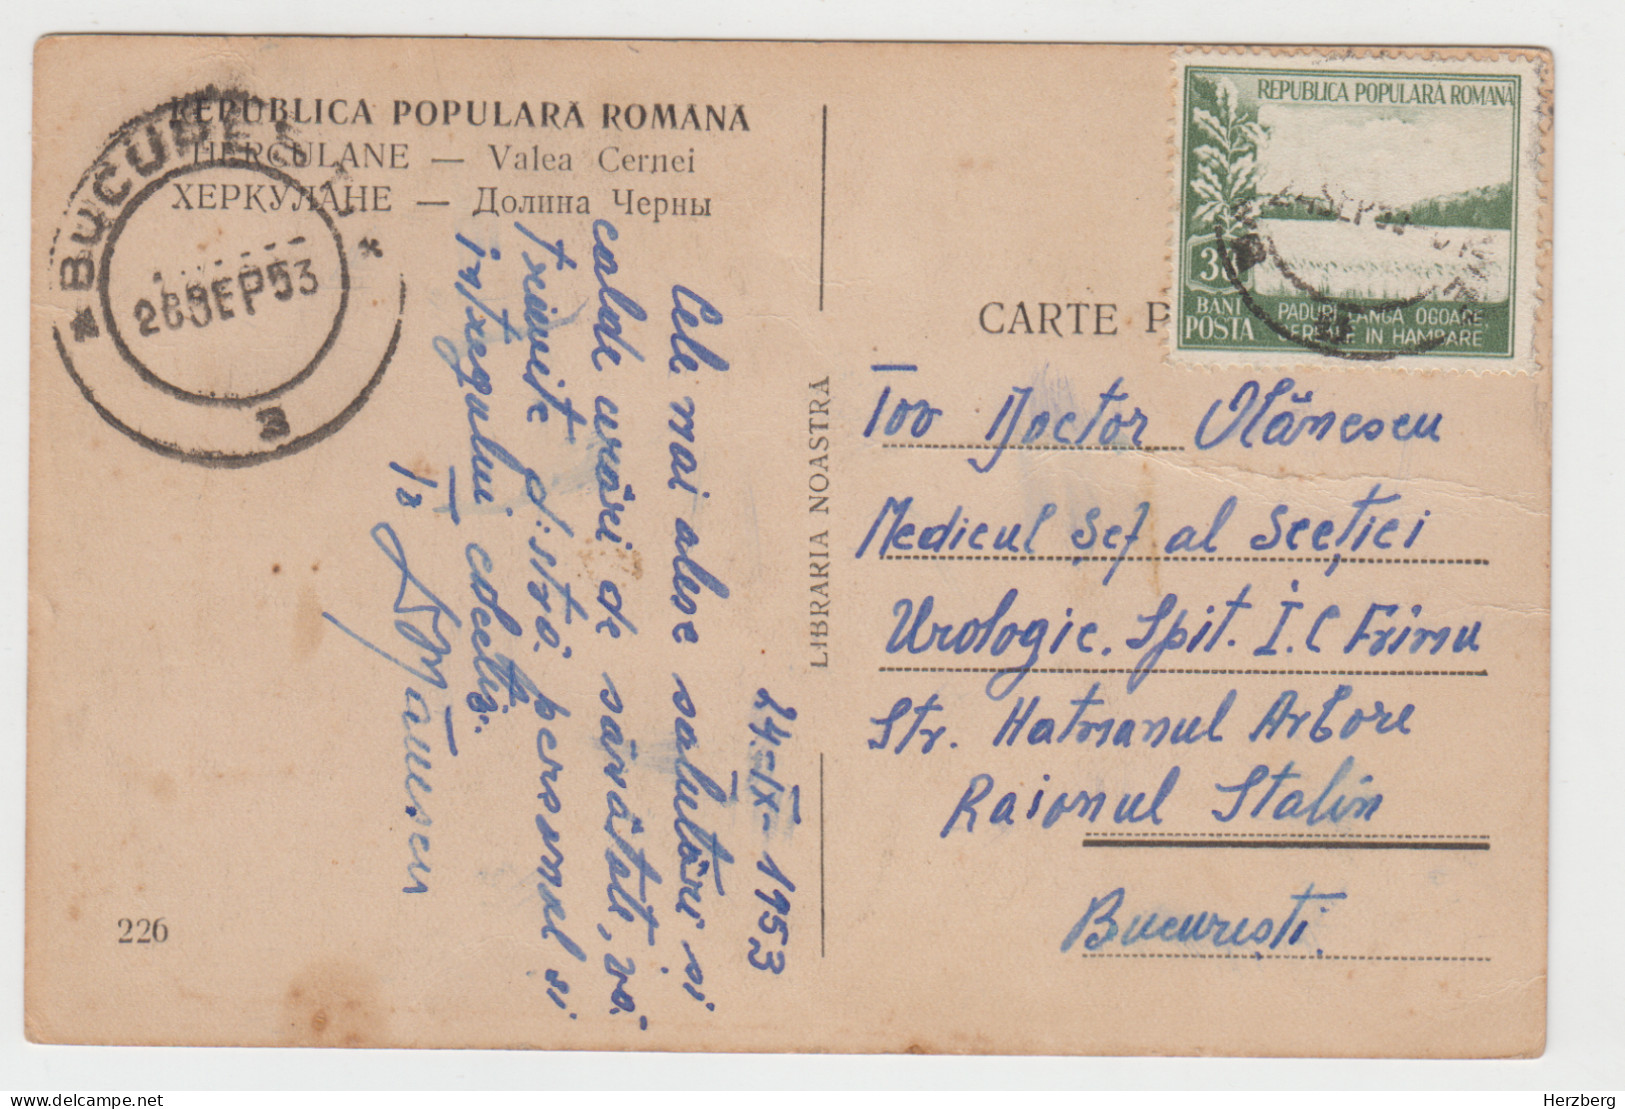 REPUBLICA POPULARĂ ROMÂNĂ
HERCULANE — Valea Cernei
ХЕРКУЛАНЕ — Долина Черны
BUCUREȘTI
26 SEP 53
3
24-IX-1953
Cele mai alese salutări și
calde urări de sănătate, vă
trimite d:stră personal și
întregului colectiv.
226
LIBRARIA NOASTRĂ
CARTE P
REPUBLICA POPULARĂ ROMÂNĂ
BANI
POSTA
PADURI LANGA OGOARE,
CEREALE IN HAMBARE
24 SEP 53
Tov Doctor Olănescu
Medicul Șef al Secției
Urologie. Spit. I.C Frimu
Str. Hatmanul Arbore
Raionul Stalin
București.
Herzberg